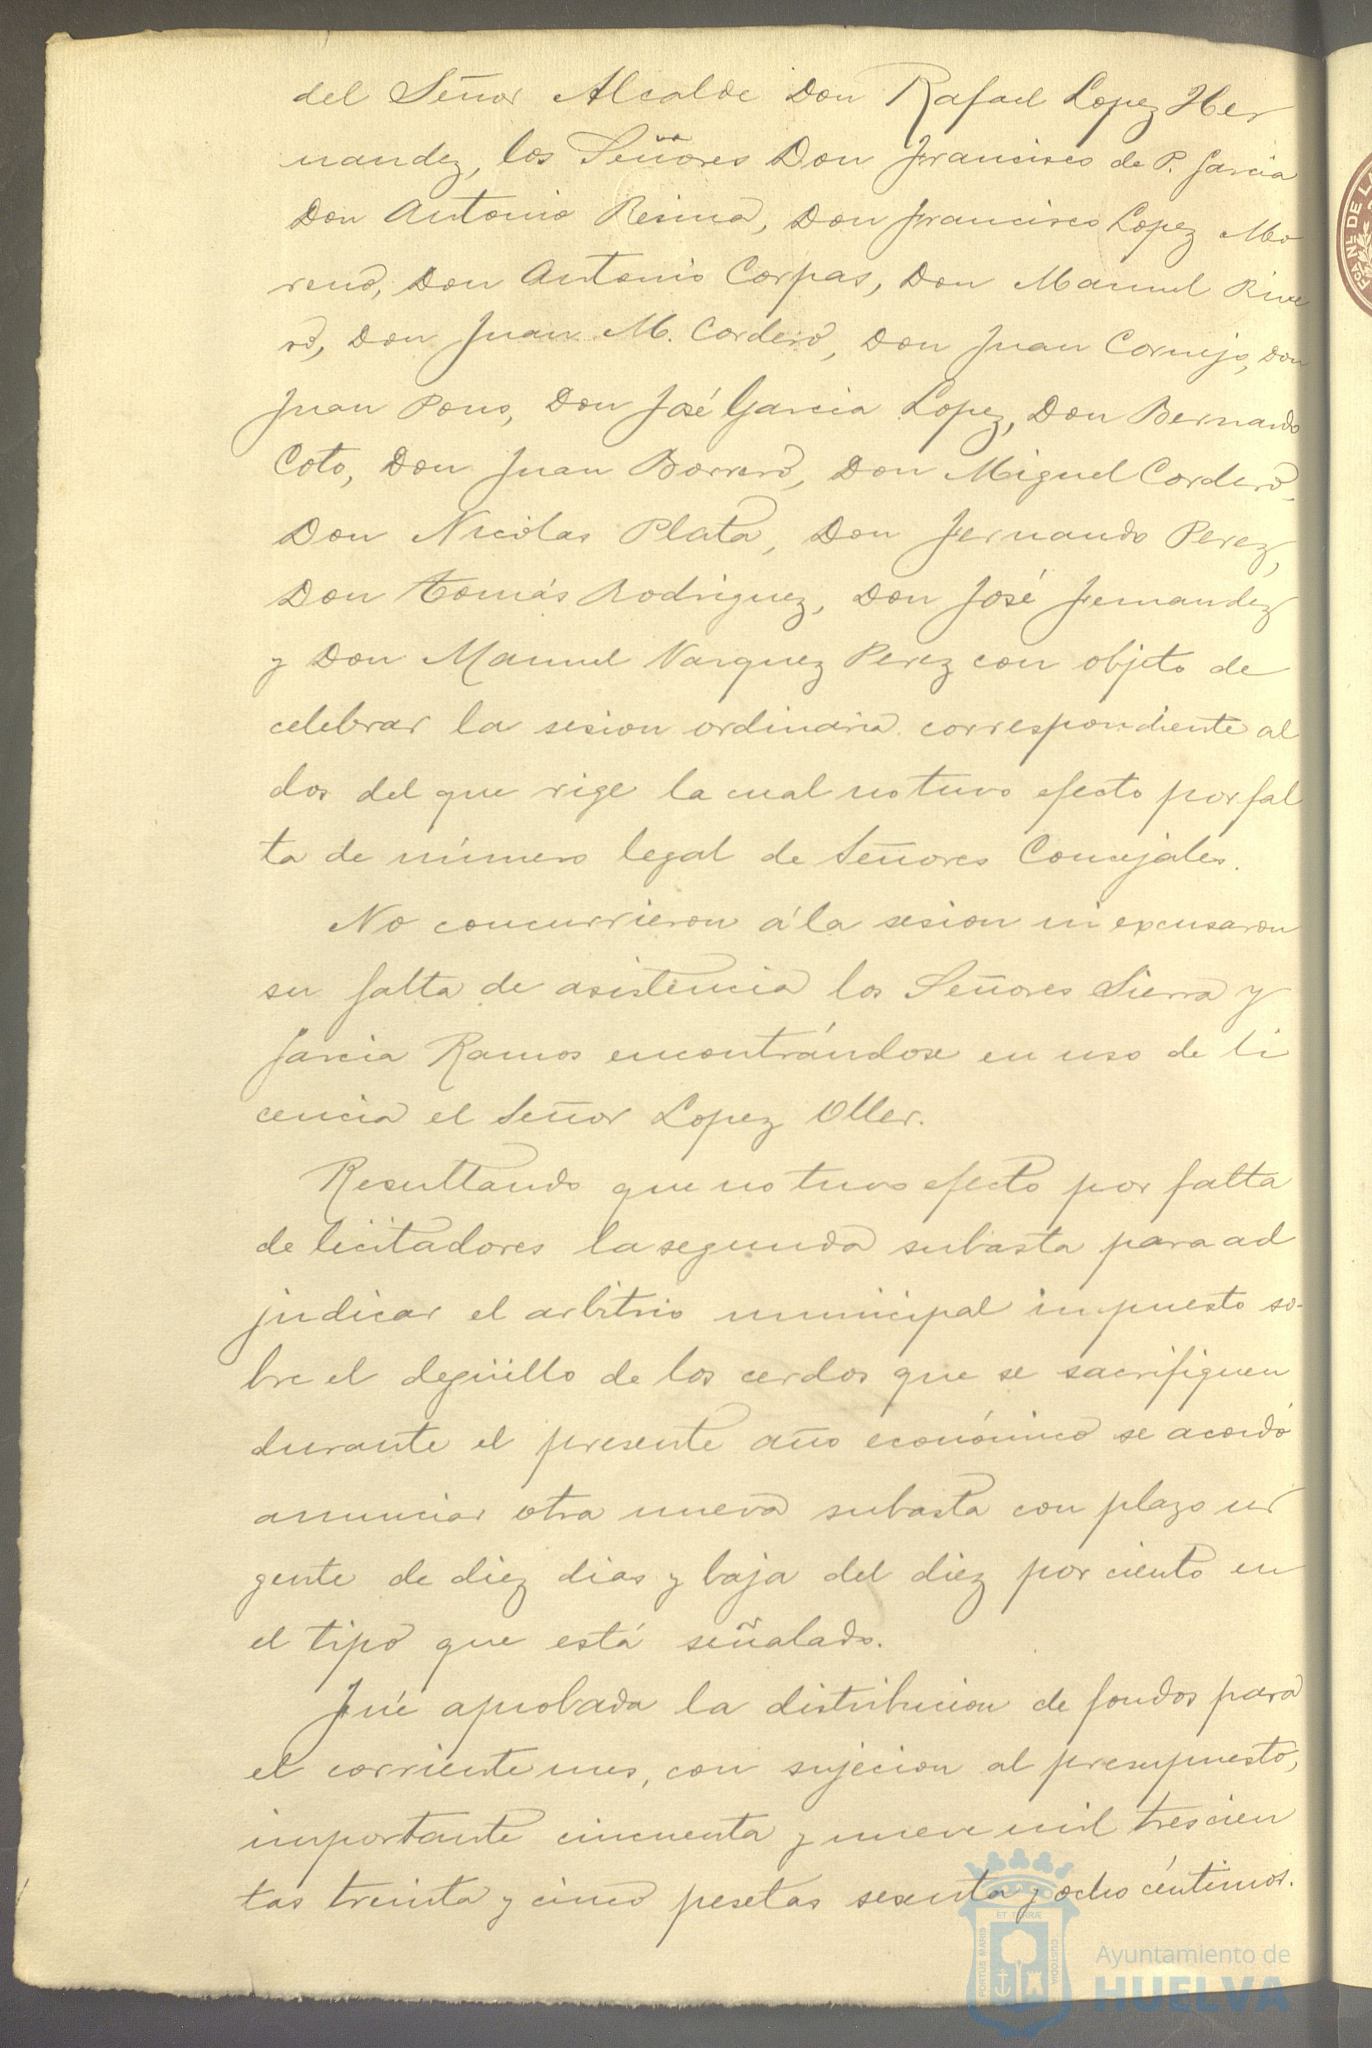 del Señor Alcalde Don Rafael Lopez Her
nandez, los Señores Don Francisco de P. Garcia
Don Antonio Resina, Don Francisco Lopez Mo
reno, Don Antonio Corpas, Don Manuel Rive
ro, Don Juan M. Cordero, Don Juan Cornejo, Don
Juan Pons, Don José Garcia Lopez, Don Bernardo
Coto, Don Juan Borrero, Don Miguel Cordero,
Don Nicolas Plata, Don Fernando Perez,
Don Tomás Rodriguez, Don José Fernandez
y Don Manuel Vazquez Perez con objeto de
celebrar la sesion ordinaria correspondiente al
dos del que rige la cual no tuvo efecto por fal
ta de número legal de Señores Concejales.
No concurrieron á la sesion ni excusaron
su falta de asistencia los Señores Sierra y
Garcia Ramos encontrándose en uso de li
cencia el Señor Lopez Oller.
Resultando que no tuvo efecto por falta
de licitadores la segunda subasta para ad
judicar el arbitrio municipal impuesto so-
bre el degüello de los cerdos que se sacrifiquen
durante el presente año económico se acordó
anunciar otra nueva subasta con plazo ur
gente de diez dias y baja del diez por ciento en
el tipo que está señalado.
Fué aprobada la distribucion de fondos para
el corriente mes, con sujecion al presupuesto,
importante cincuenta y nueve mil trescien
tas treinta y cinco pesetas sesenta y ocho céntimos.
PORTUS MARIS
ET TERRÆ
CUSTODIA
Ayuntamiento de
HUELVA